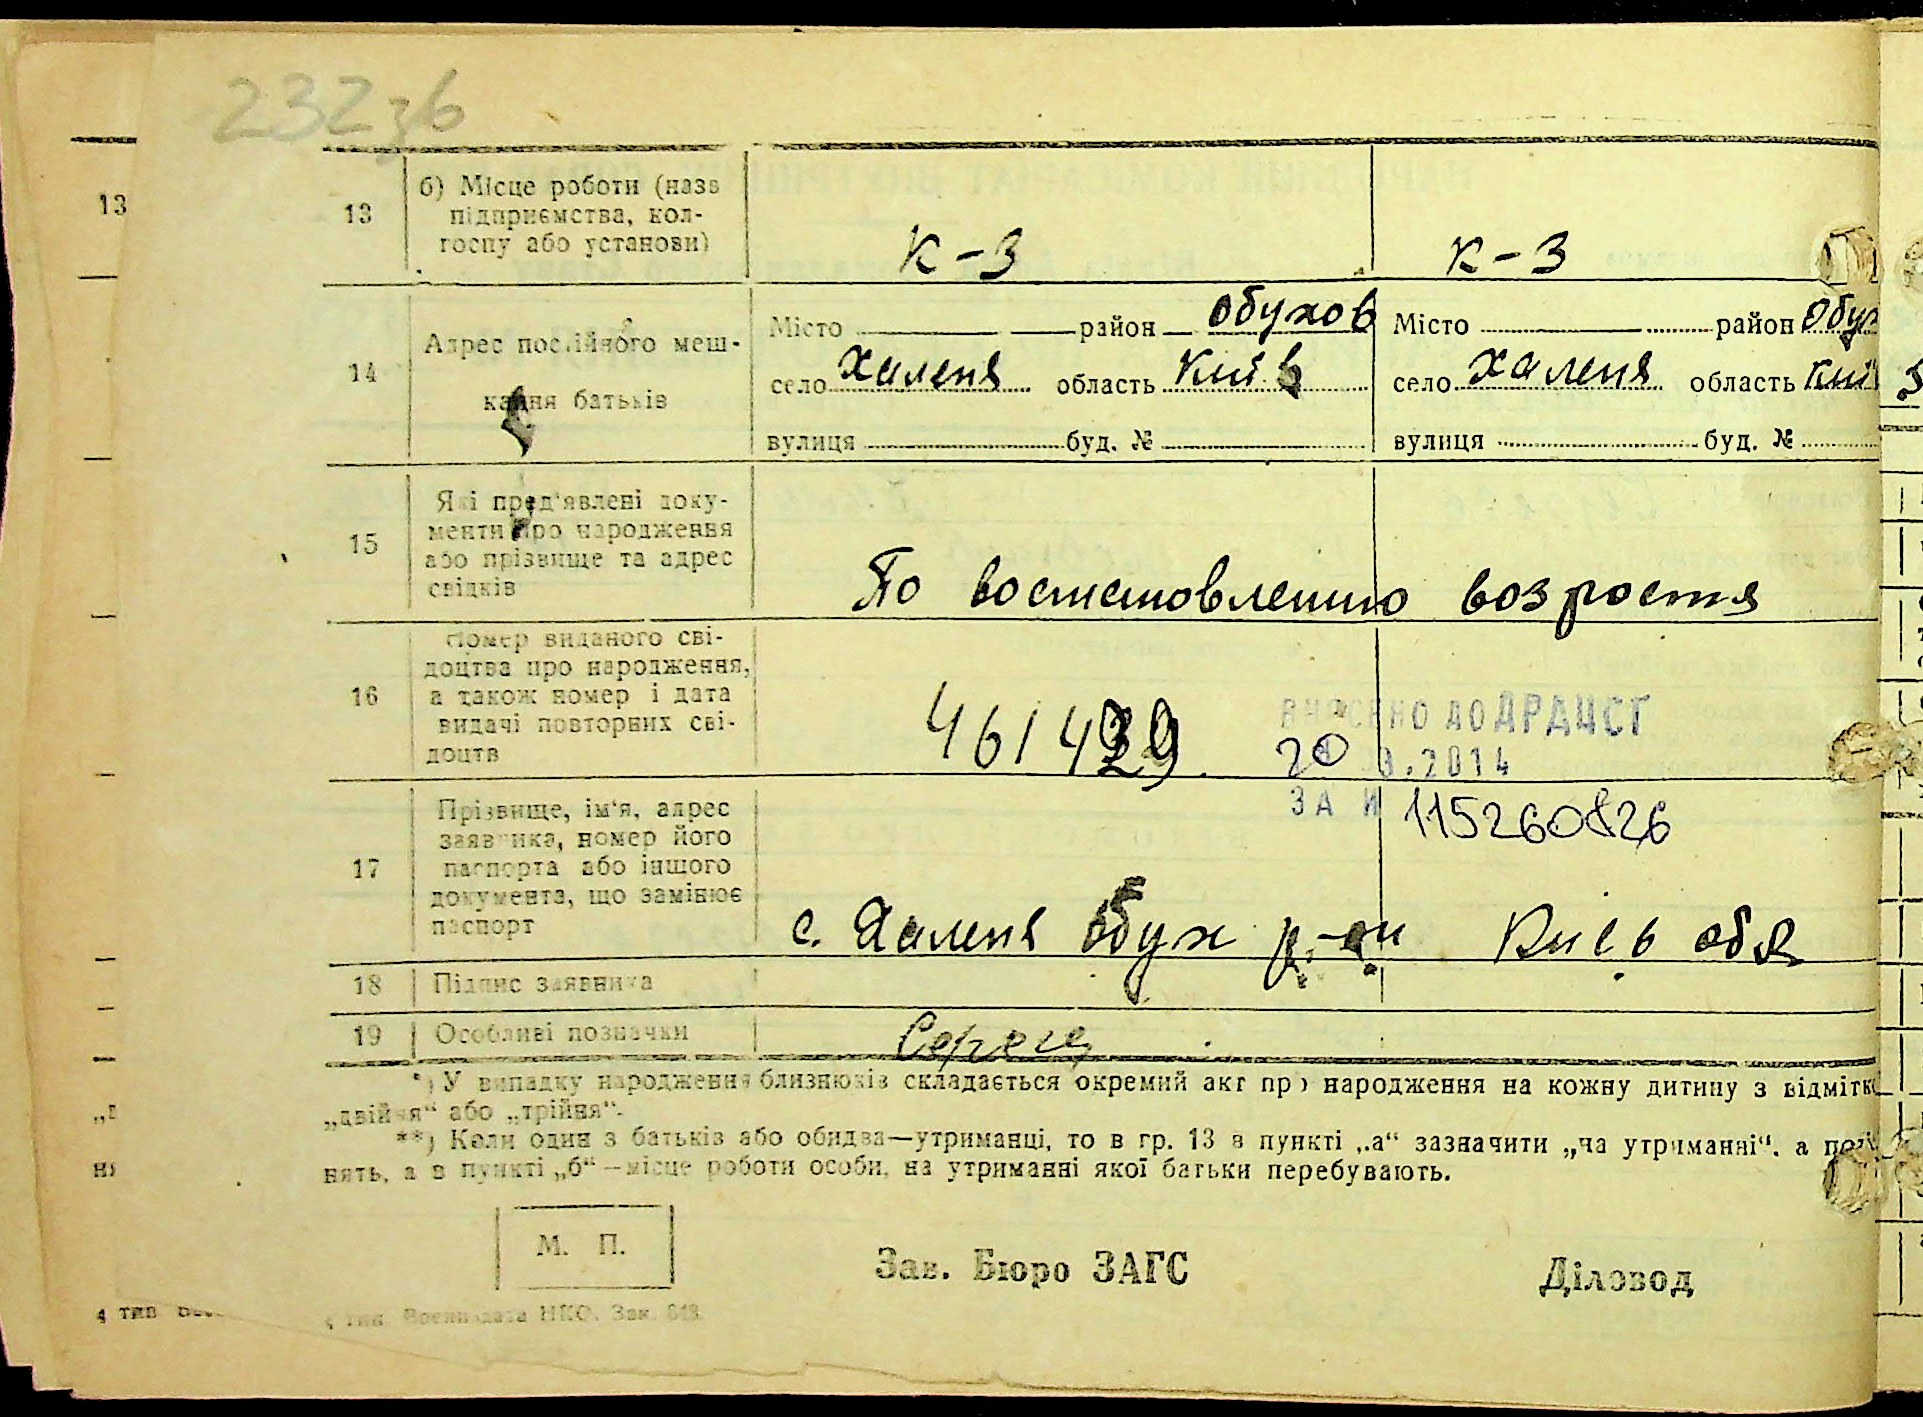 232зб
13
13
б) Місце роботи (назв
підприємства, кол-
госпу або установи)
К-З
К-З
14
Адрес постійного меш-
кання батьків
Місто район Обухов
село Халепя область Київ
вулиця буд. №
Місто район Обух
село Халепя область Киї
вулиця буд. №
15
Які пред'явлені доку-
менти про народження
або прізвище та адрес
свідків
По востановлению возроста
16
Номер виданого сві-
доцтва про народження,
а також номер і дата
видачі повторних сві-
доцтв
461429
ВНЕСЕНО ДО ДРАЦСГ
20 .2014
ЗА И 115260826
17
Прізвище, ім'я, адрес
заявника, номер його
паспорта або іншого
документа, що замінює
паспорт
с. Халепя Обух р-он Киев обл
18
Підпис заявника
19
Особливі позначки
*) У випадку народження близнюків складається окремий акт про народження на кожну дитину з відмітко
„двійня“ або „трійня“.
**) Коли один з батьків або обидва—утриманці, то в гр. 13 в пункті „а“ зазначити „на утриманні“, а
нять, а в пункті „б“—місце роботи особи, на утриманні якої батьки перебувають.
М. П.
Зав. Бюро ЗАГС
Діловод
4 тип. Воениздата НКО. Зак. 613.